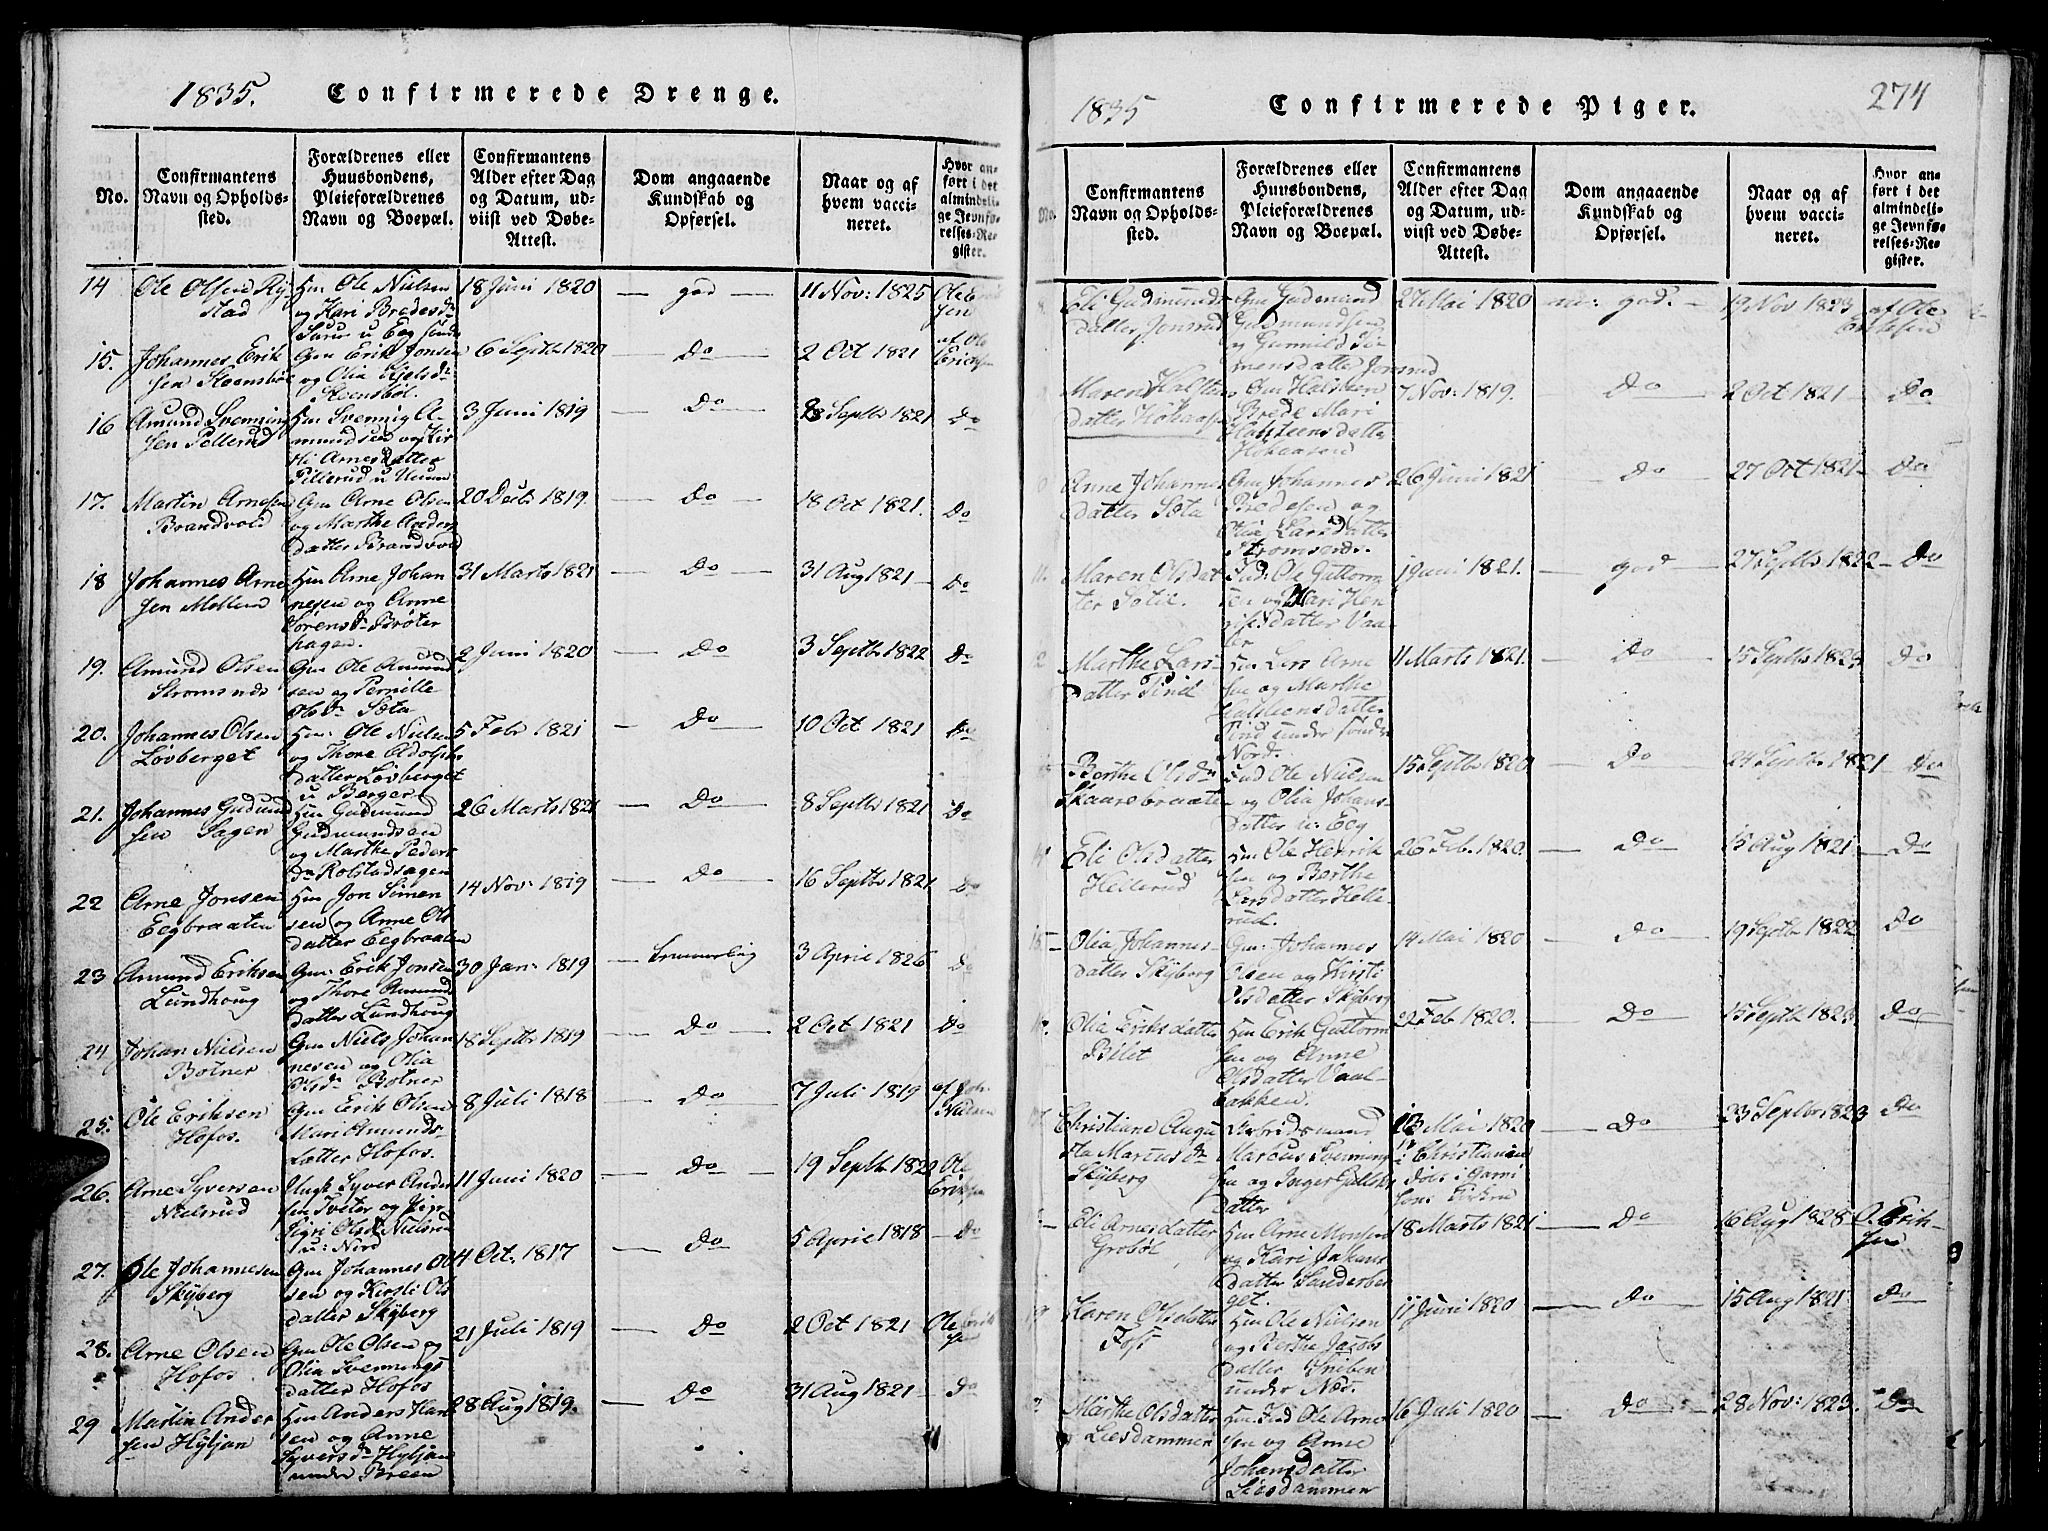 1835. Confirmerede Drenge.
No.
Confirmantens
Navn og Opholds-
sted.
Forældrenes eller
Huusbondens,
Pleieforældrenes
Navn og Boepæl.
Confirmantens
Alder efter Dag
og Datum, ud-
viist ved Døbe-
Attest.
Dom angaaende
Kundskab og
Opførsel.
Naar og af
hvem vacci-
neret.
Hvor an-
ført i det
almindeli-
ge Jevnfø-
relses-Re-
gister.
14 Ole Olsen Ry-
stad
Ole Nielsen
og Kari Bredesdr
u Eeg
18 Juni 1820 — god — 11 Nov: 1825
15. Johannes Erik
sen Steensbøl
Gm Erik Jonsen
og Olia
Steensbøl.
6 Septb 1820 — Do — 2 Oct 1821 af Ole
Erichsen
16 Amund Svenning
sen Pellerud
Svennig A
mundsen og Kir
sti Arnesdatter
Pillerud u
3 Juni 1819 — Do — 28 Septb 1821 Do
17. Martin Arnesen
Brandvold
Gm Arne Olsen
og Marthe Anders
datter Brandvold
20 Decb 1819. — Do — 18 Oct 1821. Do
18 Johannes Arne
sen Mollerud
Hm Arne Johan
nesen og Anne
Sørensdr Brøter
hagen.
31 Marts 1821 — Do — 31 Aug 1821 — Do
19. Amund Olsen
Stromsnes
Gm Ole Amund
sen og Pernille
Olsdr Sota
2 Juni 1820 — Do — 3 Septb 1822 Do
20. Johannes Olsen
Løvberget
Hm: Ole Nielsen
og Thore Adolphs
datter Løvberget
u Berger
5 Febr 1821 — Do — 10 Oct 1821 Do
21. Johannes Gudmund
sen Sagen
Hm Gudmund
Gudmundsen
og Marthe Peders
dr Rolstadsagen
26 Marts 1821 — Do — 8 Septb 1821 Do
22 Arne Jonsen
Eegbraaten
Hm Jon Simen
sen og Anne Ols
datter Eegbraaten
14 Nov: 1819 — Do — 16 Septb 1821 Do
23 Amund Eriksen
Lundhoug
Gm: Erik Jonsen
og Thore Amund
datter Lundhoug
30 Jan: 1819 — temmerlig — 3 April 1826 Do
24 Johan Nielsen
Botner
Gm Niels Johan
nesen og Olia
Olsdr Botner
18 Septb 1819 — Do — 2 Oct 1821 Do
25. Ole Eriksen
Hofos.
Gm Erik Olsen
Mari Amunds-
datter Hofos.
8 Juli 1818 — Do — 7 Juli 1819 af Joh.
Nielsen
26. Arne Syversen
Nielsrud
Ungk Syver Ander
sen Tveter og Pige
Sigri Olsdr Nielsrud
u: Nord
11 Juni 1820 — Do — 19 Septb 1822 Ole
Eriksen
27. Ole Johannesen
Skÿberg
Gm Johannes Ol
sen og Kirsti Ols
datter Skÿberg
4 Oct. 1817 — Do — 5 April 1818 — Do
28. Arne Olsen
Hofos
Gm Ole Olsen og
Olia Svennings
datter Hofos
21 Juli 1819 — Do — 2 Oct 1821 Ole
29 Martin Ander
sen Hyljan
Hm Anders Han
sen og Anne
Syversdr Hyljan
under Breen
28 Aug 1819. — Do — 31 Aug 1821 — Do
1835 Confirmerede Piger. 274
No.
Confirmantens
Navn og Opholds-
sted.
Forældrenes eller
Huusbondens,
Pleieforældrenes
Navn og Boepæl.
Confirmantens
Alder efter Dag
og Datum, ud-
viist ved Døbe-
Attest.
Dom angaaende
Kundskab og
Opførsel.
Naar og af
hvem vacci-
neret.
Hvor an-
ført i det
almindeli-
ge Jevnfø-
relses-Re-
gister.
Eli Gudmunds
datter Jonsrud
Gm Gudmund
Gudmundsen,
og Gunnild Si
mensdatter Jonsrud
27 Mai 1820 — m: god. — 19 Nov 1823 af Ole
Maren Halsten
datter Hokaasen
Gm Halsteen
Brede Mari
Halsteensdatter
Hokaasen
7 Nov: 1819. — Do — 2 Oct 1821 — Do
Anne Johannes
datter Sota
Gm Johannes
Bredesen og
Olia Larsdatter
Stromsnes.
26 Juni 1821 — Do — 27 Oct 1821 — Do
11. Maren Olsdat
ter Sotie.
Ole Guttorm
sen og Mari Hen
riksdatter Vaa
ler
1 Juni 1821. — god — 27 Septb 1822 — Do
Marthe Lars
datter Tind
Hm Lars Arne
sen og Marthe
Halsteensdatter
Tind under Sondre
Nord.
11 Marts 1821. — Do — 15 Septb 1823 Do
Berthe Olsdr
Skaarebraaten
Ole Nielsen
og Olia Johans-
datter u: Eeg
15 Septb 1820 — Do — 24 Septb 1821 — Do
Eli Olsdatter
Hellerud
Hm Ole Henrik
sen og Berthe
Larsdatter Helle
rud.
26 Feb. 1820. — Do — 15 Aug 1821 — Do
15 Olia Johannes-
datter Skÿberg
Gm: Johannes
Olsen og Kirsti
Olsdatter Skÿberg
14 Mai 1820 — Do — 19 Septb 1822 Do
Olia Eriksdatter
Pilet
Hm Erik Guttorm
sen og Anne
Olsdatter Vaal-
bakken.
22 Feb 1820. — Do — 15 Septb 1823. Do
Christiane Augu
sta Marcusdr
Skÿberg
Arbeidsmand
Marcus Svenning
sen og Inger
datter
13 Mai 1820
i Christianien
dobt i Garni
sons Kirken
— Do — 23 Septbr 1823 Do
Eli Arnesdatter
Grobøl
Hm Arne Monsen
og Kari Johans
datter Sanderber
get.
18 Marts 1821 — Do — 16 Aug 1825 O. Erik-
sen
19 Karen Olsdatter
Foss
Hm Ole Nielsen
og Berthe Jacobs
datter
under Nor.
11 Juni 1820 — Do — 15 Aug 1821 Do
Marthe Olsdatter
Liesdammen
Ole Arne
sen og Anne
Johansdatter
Liesdammen
16 Juli 1820 — Do — 28 Nov: 1823. — Do